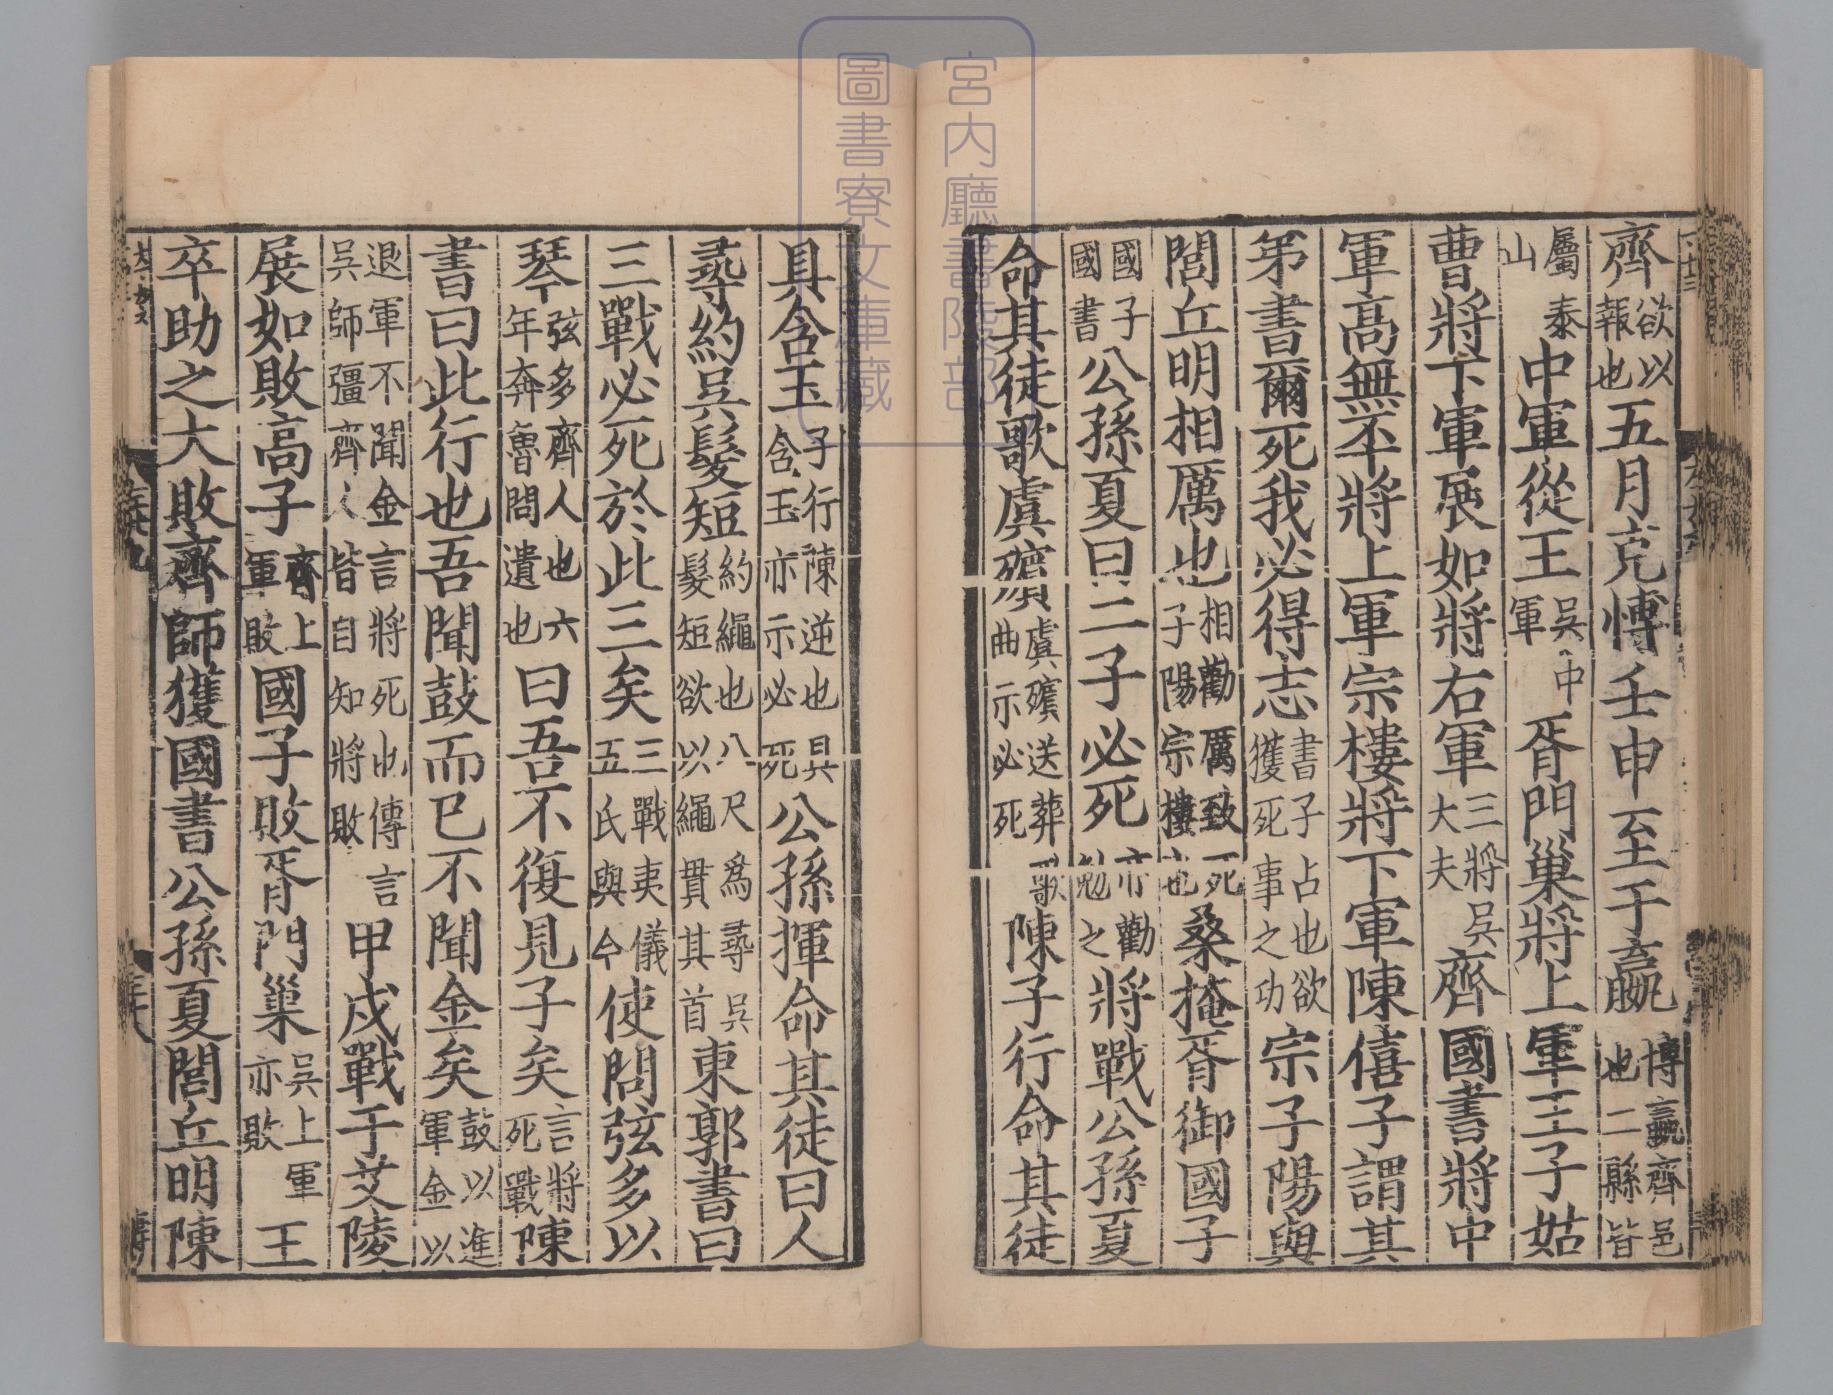 齊欲以報也五月克博壬申至于嬴博嬴齊邑也二縣皆
屬泰山中軍從王吳中軍胥門巢將上軍王子姑
曹將下軍展如將右軍三將吳大夫齊國書將中
軍高無㔻將上軍宗樓將下軍陳僖子謂其
弟書爾死我必得志書子占也欲獲死事之功宗子陽與
閭丘明相厲也相勸厲致死子陽宗樓也桑掩胥御國子
國子國書公孫夏曰二子必死亦勸勉之將戰公孫夏
命其徒歌虞殯虞殯送葬歌曲示必死陳子行命其徒
具含玉子行陳逆也具含玉亦示必死公孫揮命其徒曰人
尋約吳髮短約繩也八尺爲尋吳髮短欲以繩貫其首東郭書曰
三戰必死於此三矣三戰夷儀五氏與今使問弦多以
琴弦多齊人也六年奔魯問遺也曰吾不復見子矣言將死戰陳
書曰此行也吾聞鼓而已不聞金矣鼓以進軍金以
退軍不聞金言將死也傳言吳師彊齊人皆自知將敗甲戌戰于艾陵
展如敗高子齊上軍敗國子敗胥門巢吳上軍亦敗王
卒助之大敗齊師獲國書公孫夏閭丘明陳
宮內廳書陵部
圖書寮文庫藏